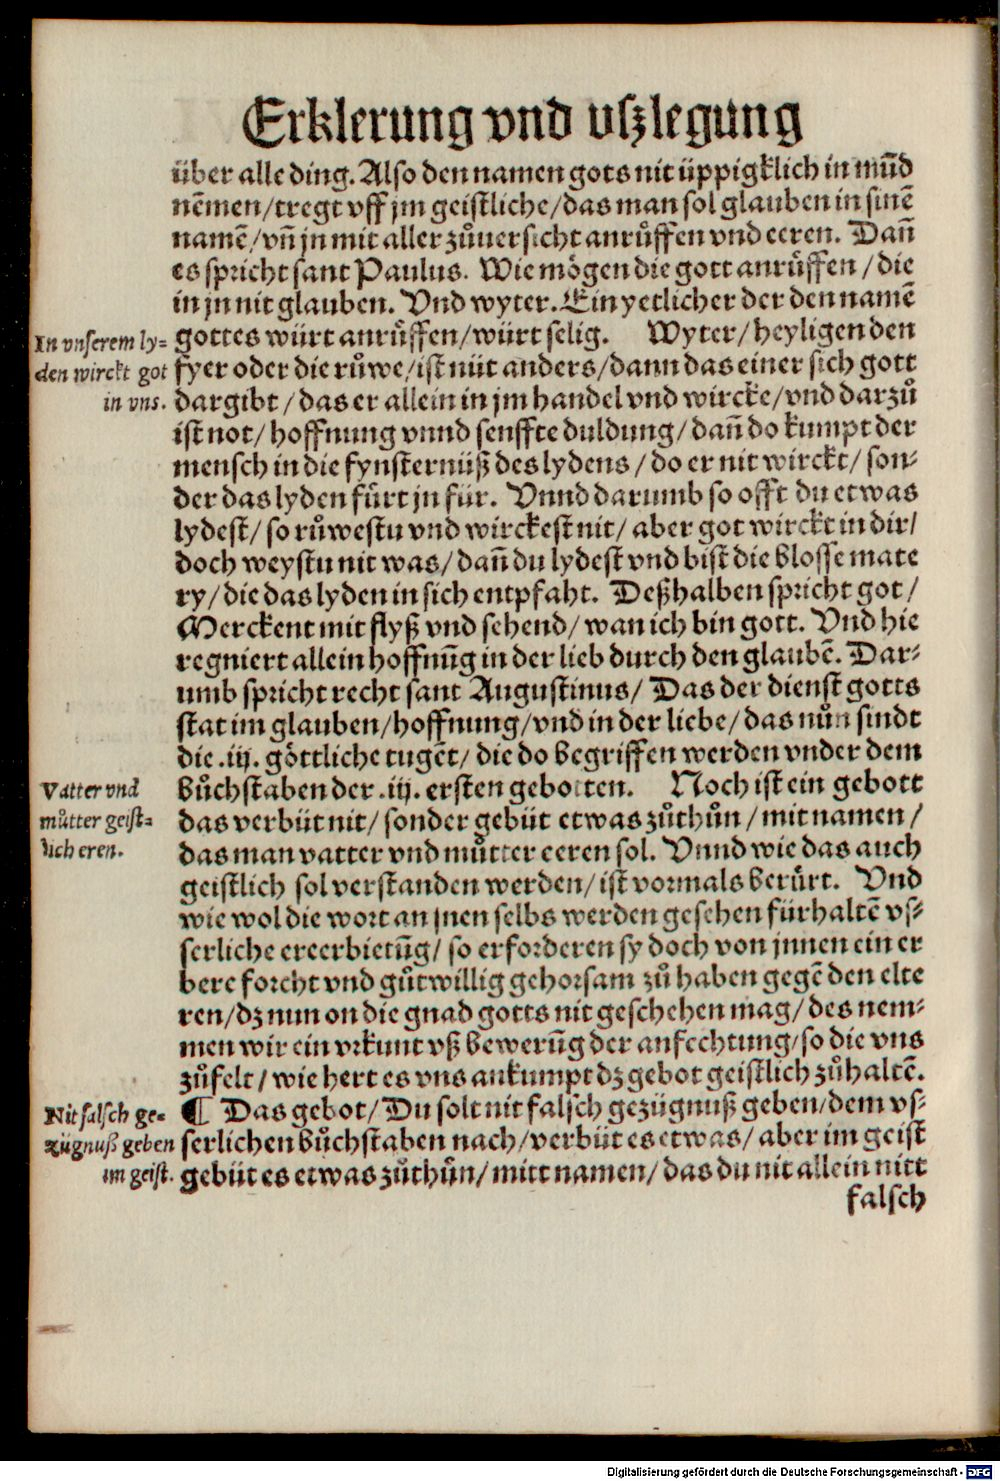 Erklerung vnd vſzlegung
über alle ding. Also den namen gots nit üppigklich in mūd
nēmen/tregt vff jm geistliche/das man sol glauben in sinē
namē/vn̄ jn mit aller zůuersicht anrůffen vnd eeren. Dan̄
es spricht sant Paulus. Wie mögen die gott anrůffen/die
in jn nit glauben. Vnd wyter. Ein yetlicher der den namē
gottes würt anrůffen/würt selig. Wyter/heyligen den
In vnserem ly=
den wirckt got
in vns.
fyer oder die růwe/ist nüt anders/dann das einer sich gott
dargibt/das er allein in jm handel vnd wircke/vnd darzů
ist not/hoffnung vnnd senffte duldung/dan̄ do kumpt der
mensch in die fynsternüß des lydens/do er nit wirckt/son-
der das lyden fůrt jn für. Vnnd darumb so offt du etwas
lydest/so růwestu vnd wirckest nit/aber got wirckt in dir/
doch weystu nit was/dan̄ du lydest vnd bist die blosse mate
ry/die das lyden in sich entpfaht. Deßhalben spricht got/
Merckent mit flyß vnd sehend/wan ich bin gott. Vnd hie
regniert allein hoffnūg in der lieb durch den glaubē. Dar-
umb spricht recht sant Augustinus/Das der dienst gotts
stat im glauben/hoffnung/vnd in der liebe/das nůn sindt
die .iij. göttliche tugēt/die do begriffen werden vnder dem
bůchstaben der .iij. ersten gebotten. Noch ist ein gebott
Vatter vnd
můtter geist=
lich eren.
das verbüt nit/sonder gebüt etwas zůthůn/mit namen/
das man vatter vnd můtter eeren sol. Vnnd wie das auch
geistlich sol verstanden werden/ist vormals berůrt. Vnd
wie wol die wort an jnen selbs werden gesehen fürhaltē vs-
serliche ereerbietūg/so erforderen sy doch von jnnen ein er
bere forcht vnd gůtwillig gehorsam zů haben gegē den elte
ren/dz nun on die gnad gotts nit geschehen mag/des nem-
men wir ein vrkunt vß bewerūg der anfechtung/so die vns
zůfelt/wie hert es vns ankumpt dz gebot geistlich zůhaltē.
Nit falsch ge=
zügnuß geben
im geist.
¶ Das gebot/Du solt nit falsch gezügnuß geben/dem vs-
serlichen bůchstaben nach/verbüt es etwas/aber im geist
gebüt es etwas zůthůn/mitt namen/das du nit allein nitt
falsch
Digitalisierung gefördert durch die Deutsche Forschungsgemeinschaft - DFG